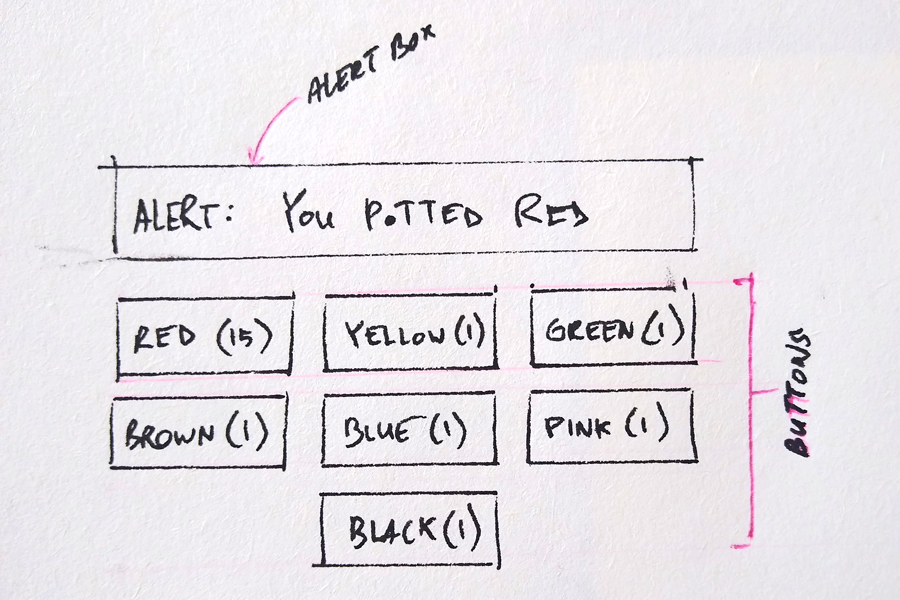 ALERT BOX
ALERT: You POTTED RED
RED (15) YELLOW (1) GREEN (1)
BROWN (1) BLUE (1) PINK (1)
BLACK (1)
BUTTONS